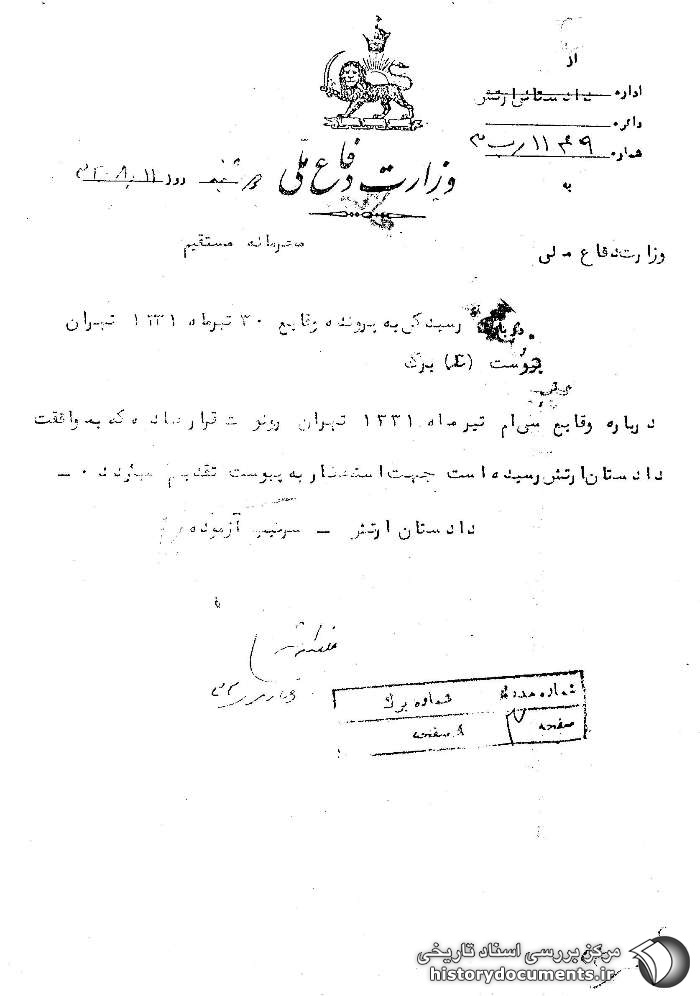 از
اداره دادستانی ارتش
دائره
شماره ۱۱۴۶۹
به
وزارت دفاع ملی
روز شنبه ۱۱
محرمانه مستقیم
وزارت دفاع ملی
درباره رسیدگی به پرونده وقایع ۳۰ تیرماه ۱۳۳۱ تهران
پیوست برگ
درباره وقایع سی‌ام تیر ماه ۱۳۳۱ تهران رونوشت قرار صادره که بموافقت
دادستان ارتش رسیده است جهت استحضار به پیوست تقدیم میگردد ۰ ـ
دادستان ارتش ـ سرتیپ آزموده
شماره برگ
صفحه
صفحه
مرکز بررسی اسناد تاریخی
historydocuments.ir